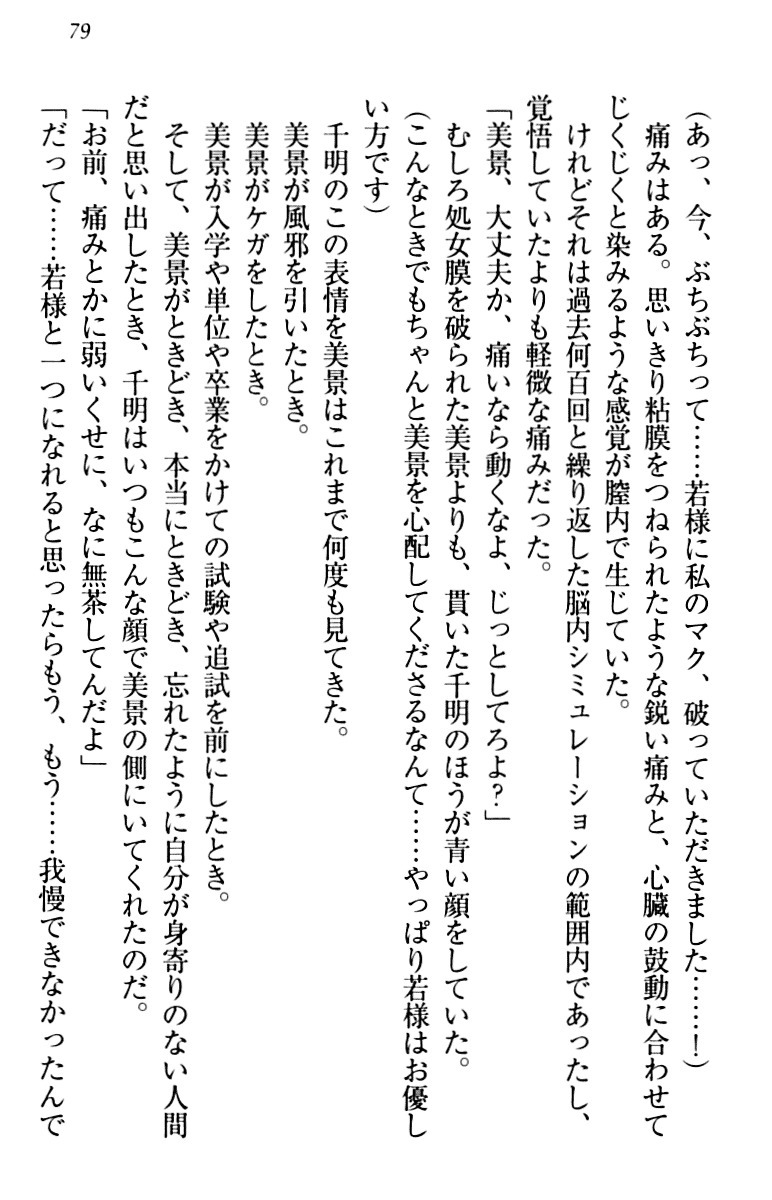 79
(あっ、今、ぶちぶちって……若様に私のマク、破っていただきました……！)
痛みはある。思いきり粘膜をつねられたような鋭い痛みと、心臓の鼓動に合わせて
じくじくと染みるような感覚が膣内で生じていた。
けれどそれは過去何百回と繰り返した脳内シミュレーションの範囲内であったし、
覚悟していたよりも軽微な痛みだった。
「美景、大丈夫か、痛いなら動くなよ、じっとしてろよ？」
むしろ処女膜を破られた美景よりも、貫いた千明のほうが青い顔をしていた。
(こんなときでもちゃんと美景を心配してくださるなんて……やっぱり若様はお優し
い方です)
千明のこの表情を美景はこれまで何度も見てきた。
美景が風邪を引いたとき。
美景がケガをしたとき。
美景が入学や単位や卒業をかけての試験や追試を前にしたとき。
そして、美景がときどき、本当にときどき、忘れたように自分が身寄りのない人間
だと思い出したとき、千明はいつもこんな顔で美景の側にいてくれたのだ。
「お前、痛みとかに弱いくせに、なに無茶してんだよ」
「だって……若様と一つになれると思ったらもう、もう……我慢できなかったんで